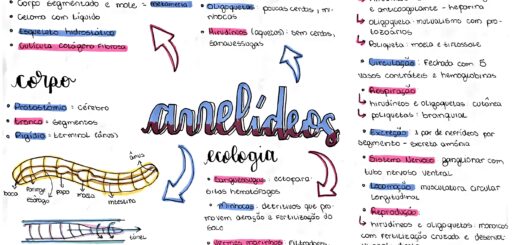 Corpo segmentado e mole = metameria
Celoma com líquido
Esqueleto hidrostático
Cutícula colágena fibrosa
corpo
Prostômio: cérebro
tronco: segmentos
Pigídio: terminal (ânus)
ânus
boca
faringe
esôfago
papo
moela
intestino
túnel
Oligoquetas: poucas cerdas, mi-
nhocas
Hirudíneos (aquetos): sem cerdas,
sanguessugas
anelídeos
ecologia
Sanguessugas: ectopara-
sitas hematófagos
Minhocas: detritívos que pro
movem aeração e fertilização do
solo
Vermes marinhos: filtradores
e anticoagulante - heparina
oligoqueta: mutualismo com pro-
tozoários
Poliqueta: moela e tiflossole
Circulação: Fechado com 5
vasos contráteis e hemoglobinas
Respiração
hirudíneos e oligoquetas cutânea
poliquetas: branquial
Excreção: 1 par de nefrídeos por
segmento - excreta amônia
Sistema Nervoso: ganglionar com
tubo nervoso ventral
Locomoção: musculatura circular
longitudinal
Reprodução
hirudíneos e oligoquetas: monoicos
com fertilização cruzada e desenvol